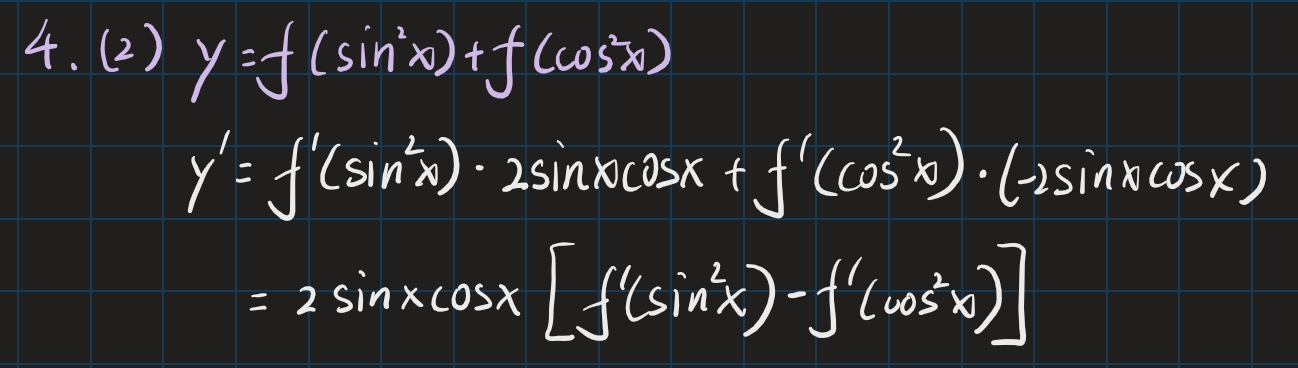 4. (2) y = f(sin²x) + f(cos²x)
y' = f'(sin²x) · 2sinxcosx + f'(cos²x) · (-2sinxcosx)
= 2sinxcosx [f'(sin²x) - f'(cos²x)]